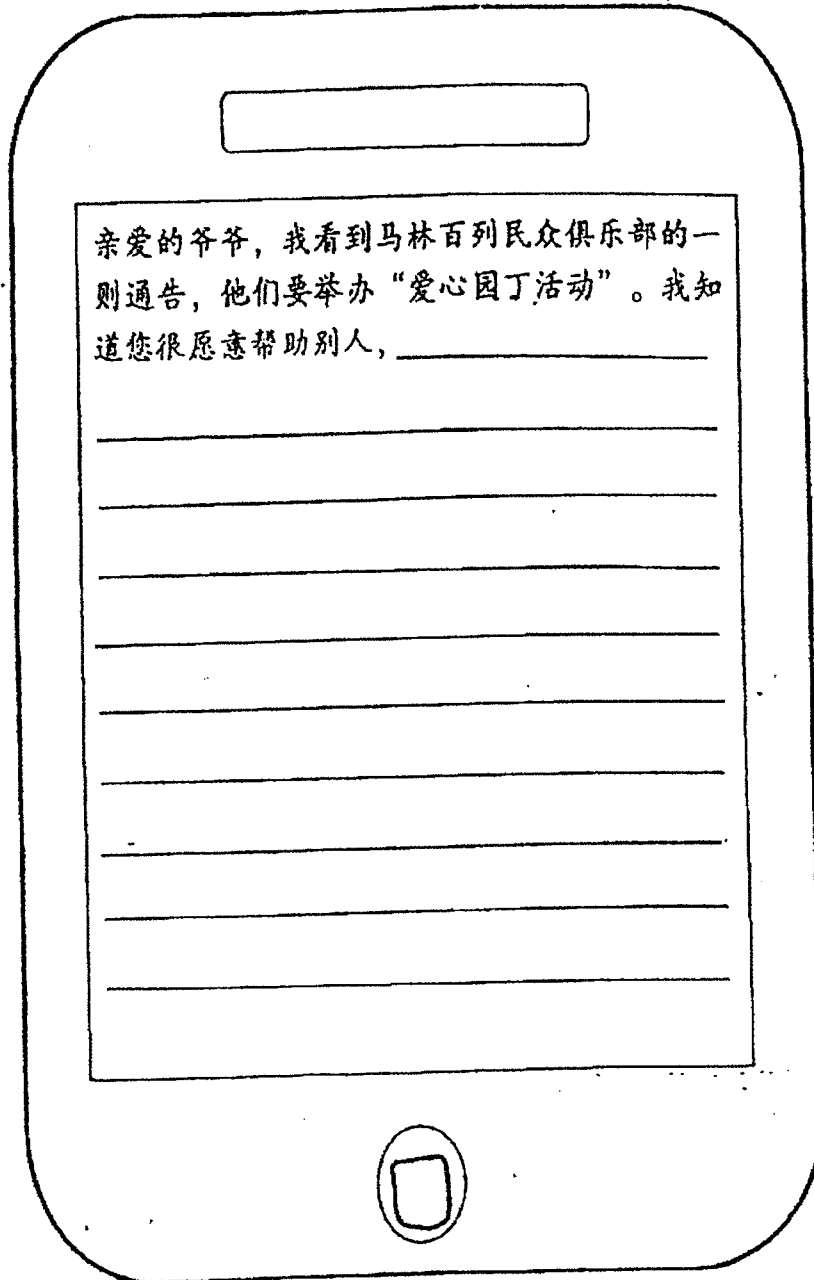 亲爱的爷爷，我看到马林百列民众俱乐部的一
则通告，他们要举办“爱心园丁活动”。我知
道您很愿意帮助别人，